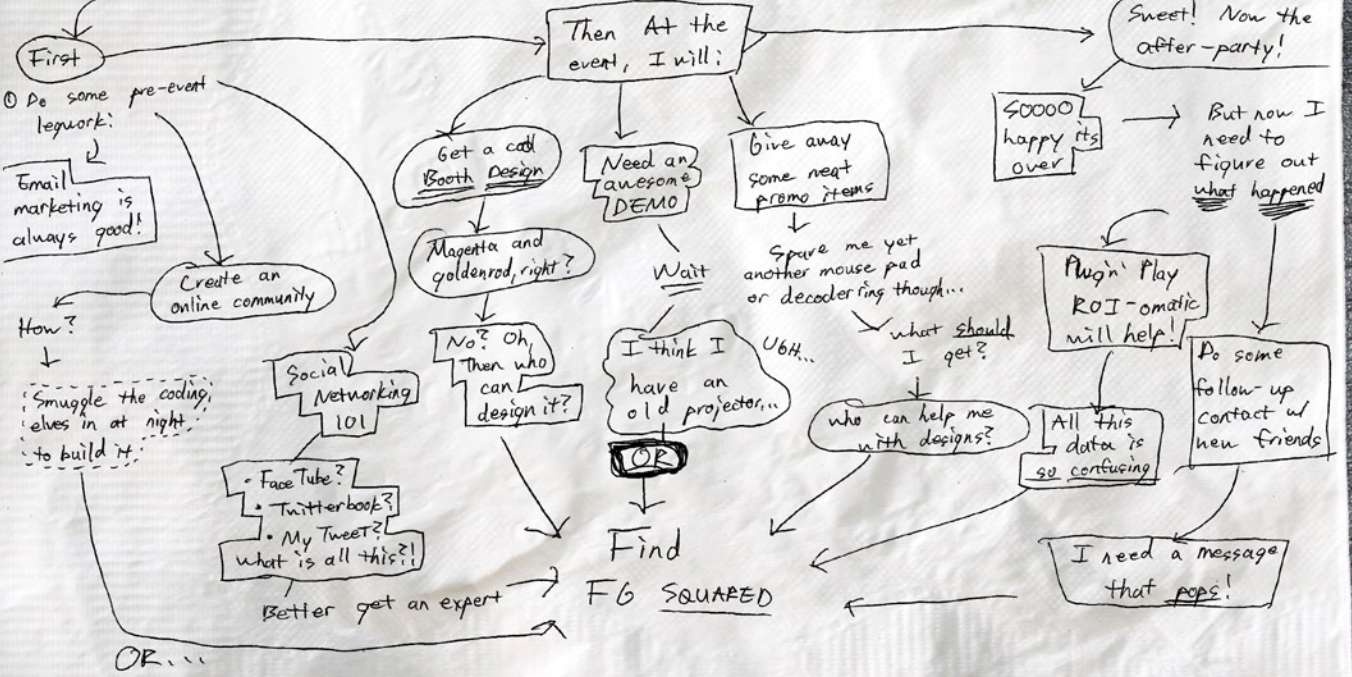 First
① Do some pre-event
legwork:
Email
marketing is
always good!
Create an
online community
How?
Smuggle the coding
elves in at night
to build it
OR...
Social
Networking
101
· FaceTube?
· Twitterbook?
· My Tweet?
what is all this?!
Better get an expert
Then At the
event, I will:
Get a cool
Booth Design
Magenta and
goldenrod, right?
No? Oh,
Then who
can
design it?
Need an
awesome
DEMO
Wait
I think I
have an
old projector...
UGH...
OR
Give away
some neat
promo items
Spare me yet
another mouse pad
or decoder ring though...
what should
I get?
who can help me
with designs?
Sweet! Now the
after-party!
SOOOO
happy its
over
But now I
need to
figure out
what happened
Plug n' Play
ROI-omatic
will help!
All this
data is
so confusing
Do some
follow-up
contact w/
new friends
I need a message
that pops!
Find
FG SQUARED